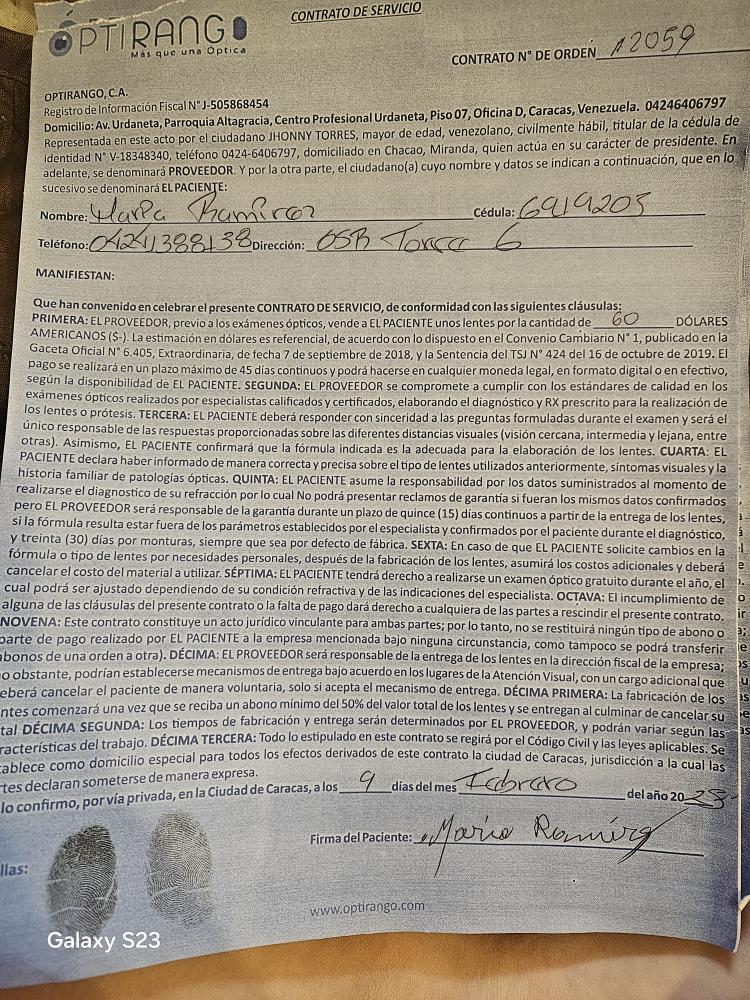 CONTRATO DE SERVICIO
OPTIRANGO
Más que una Óptica
CONTRATO N° DE ORDEN 12059
OPTIRANGO, C.A.
Registro de Información Fiscal N° J-505868454
Domicilio: Av. Urdaneta, Parroquia Altagracia, Centro Profesional Urdaneta, Piso 07, Oficina D, Caracas, Venezuela. 04246406797
Representada en este acto por el ciudadano JHONNY TORRES, mayor de edad, venezolano, civilmente hábil, titular de la cédula de
identidad N° V-18348340, teléfono 0424-6406797, domiciliado en Chacao, Miranda, quien actúa en su carácter de presidente. En
adelante, se denominará PROVEEDOR. Y por la otra parte, el ciudadano(a) cuyo nombre y datos se indican a continuación, que en lo
sucesivo se denominará EL PACIENTE:
Nombre: María Ramirez Cédula: 6919205
Teléfono: 04241388138 Dirección: OSR Torre 6
MANIFIESTAN:
Que han convenido en celebrar el presente CONTRATO DE SERVICIO, de conformidad con las siguientes cláusulas:
PRIMERA: EL PROVEEDOR, previo a los exámenes ópticos, vende a EL PACIENTE unos lentes por la cantidad de 60 DÓLARES
AMERICANOS ($-). La estimación en dólares es referencial, de acuerdo con lo dispuesto en el Convenio Cambiario N° 1, publicado en la
Gaceta Oficial N° 6.405, Extraordinaria, de fecha 7 de septiembre de 2018, y la Sentencia del TSJ N° 424 del 16 de octubre de 2019. El
pago se realizará en un plazo máximo de 45 días continuos y podrá hacerse en cualquier moneda legal, en formato digital o en efectivo,
según la disponibilidad de EL PACIENTE. SEGUNDA: EL PROVEEDOR se compromete a cumplir con los estándares de calidad en los
exámenes ópticos realizados por especialistas calificados y certificados, elaborando el diagnóstico y RX prescrito para la realización de
los lentes o prótesis. TERCERA: EL PACIENTE deberá responder con sinceridad a las preguntas formuladas durante el examen y será el
único responsable de las respuestas proporcionadas sobre las diferentes distancias visuales (visión cercana, intermedia y lejana, entre
otras). Asimismo, EL PACIENTE confirmará que la fórmula indicada es la adecuada para la elaboración de los lentes. CUARTA: EL
PACIENTE declara haber informado de manera correcta y precisa sobre el tipo de lentes utilizados anteriormente, síntomas visuales y la
historia familiar de patologías ópticas. QUINTA: EL PACIENTE asume la responsabilidad por los datos suministrados al momento de
realizarse el diagnostico de su refracción por lo cual No podrá presentar reclamos de garantía si fueran los mismos datos confirmados
pero EL PROVEEDOR será responsable de la garantía durante un plazo de quince (15) días continuos a partir de la entrega de los lentes,
si la fórmula resulta estar fuera de los parámetros establecidos por el especialista y confirmados por el paciente durante el diagnóstico,
y treinta (30) días por monturas, siempre que sea por defecto de fábrica. SEXTA: En caso de que EL PACIENTE solicite cambios en la
fórmula o tipo de lentes por necesidades personales, después de la fabricación de los lentes, asumirá los costos adicionales y deberá
cancelar el costo del material a utilizar. SÉPTIMA: EL PACIENTE tendrá derecho a realizarse un examen óptico gratuito durante el año, el
cual podrá ser ajustado dependiendo de su condición refractiva y de las indicaciones del especialista. OCTAVA: El incumplimiento de
alguna de las cláusulas del presente contrato o la falta de pago dará derecho a cualquiera de las partes a rescindir el presente contrato.
NOVENA: Este contrato constituye un acto jurídico vinculante para ambas partes; por lo tanto, no se restituirá ningún tipo de abono o
parte de pago realizado por EL PACIENTE a la empresa mencionada bajo ninguna circunstancia, como tampoco se podrá transferir
abonos de una orden a otra). DÉCIMA: EL PROVEEDOR será responsable de la entrega de los lentes en la dirección fiscal de la empresa;
o obstante, podrían establecerse mecanismos de entrega bajo acuerdo en los lugares de la Atención Visual, con un cargo adicional que
eberá cancelar el paciente de manera voluntaria, solo si acepta el mecanismo de entrega. DÉCIMA PRIMERA: La fabricación de los
ntes comenzará una vez que se reciba un abono mínimo del 50% del valor total de los lentes y se entregan al culminar de cancelar su
tal DÉCIMA SEGUNDA: Los tiempos de fabricación y entrega serán determinados por EL PROVEEDOR, y podrán variar según las
racterísticas del trabajo. DÉCIMA TERCERA: Todo lo estipulado en este contrato se regirá por el Código Civil y las leyes aplicables. Se
tablece como domicilio especial para todos los efectos derivados de este contrato la ciudad de Caracas, jurisdicción a la cual las
rtes declaran someterse de manera expresa.
lo confirmo, por vía privada, en la Ciudad de Caracas, a los 9 días del mes Febrero del año 20 25
Firma del Paciente: María Ramírez
llas:
www.optirango.com
Galaxy S23